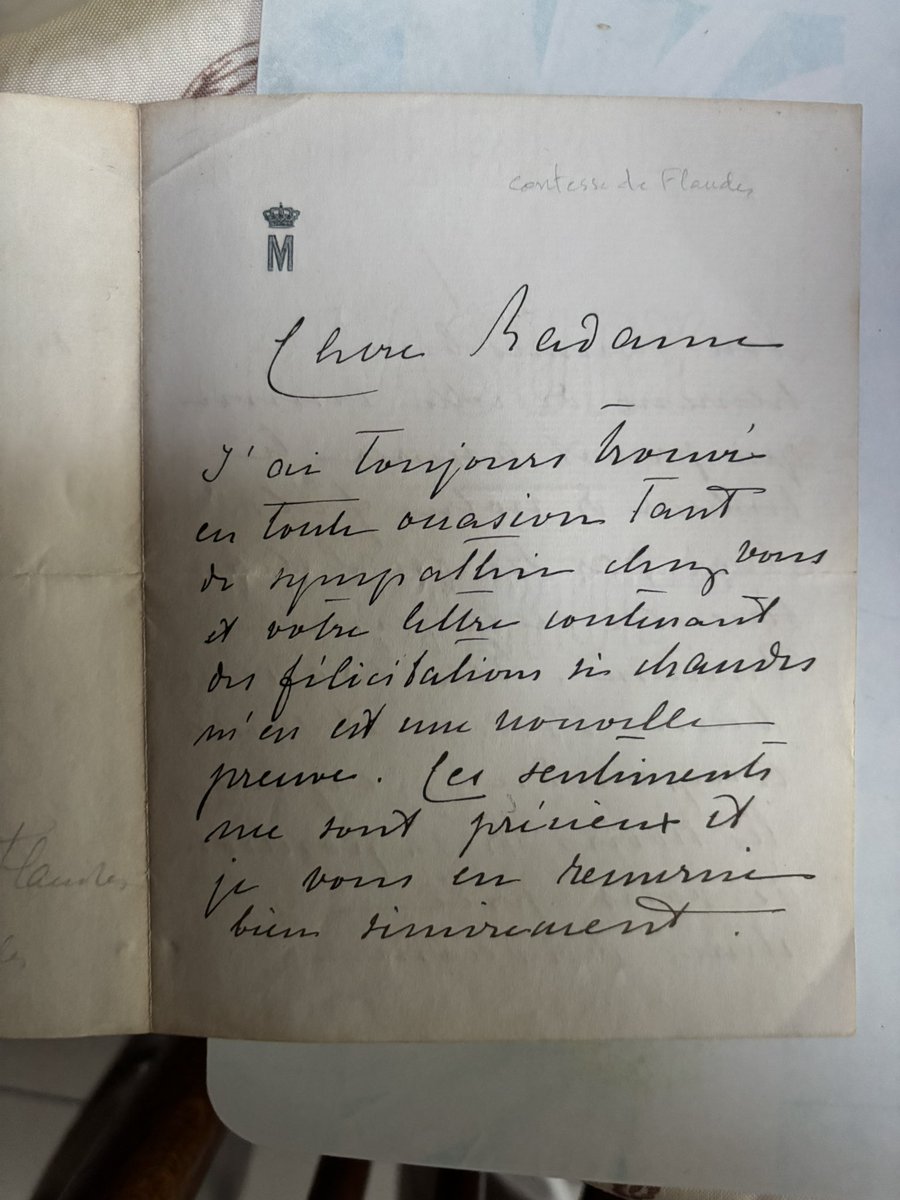 comtesse de Flandres
M
Chère Madame
J'ai toujours trouvé
en toute occasion tant
de sympathie chez vous
et votre lettre contenant
des félicitations si chaudes
m'en est une nouvelle
preuve. Ces sentiments
me sont précieux et
je vous en remercie
bien sincèrement.
Flandres